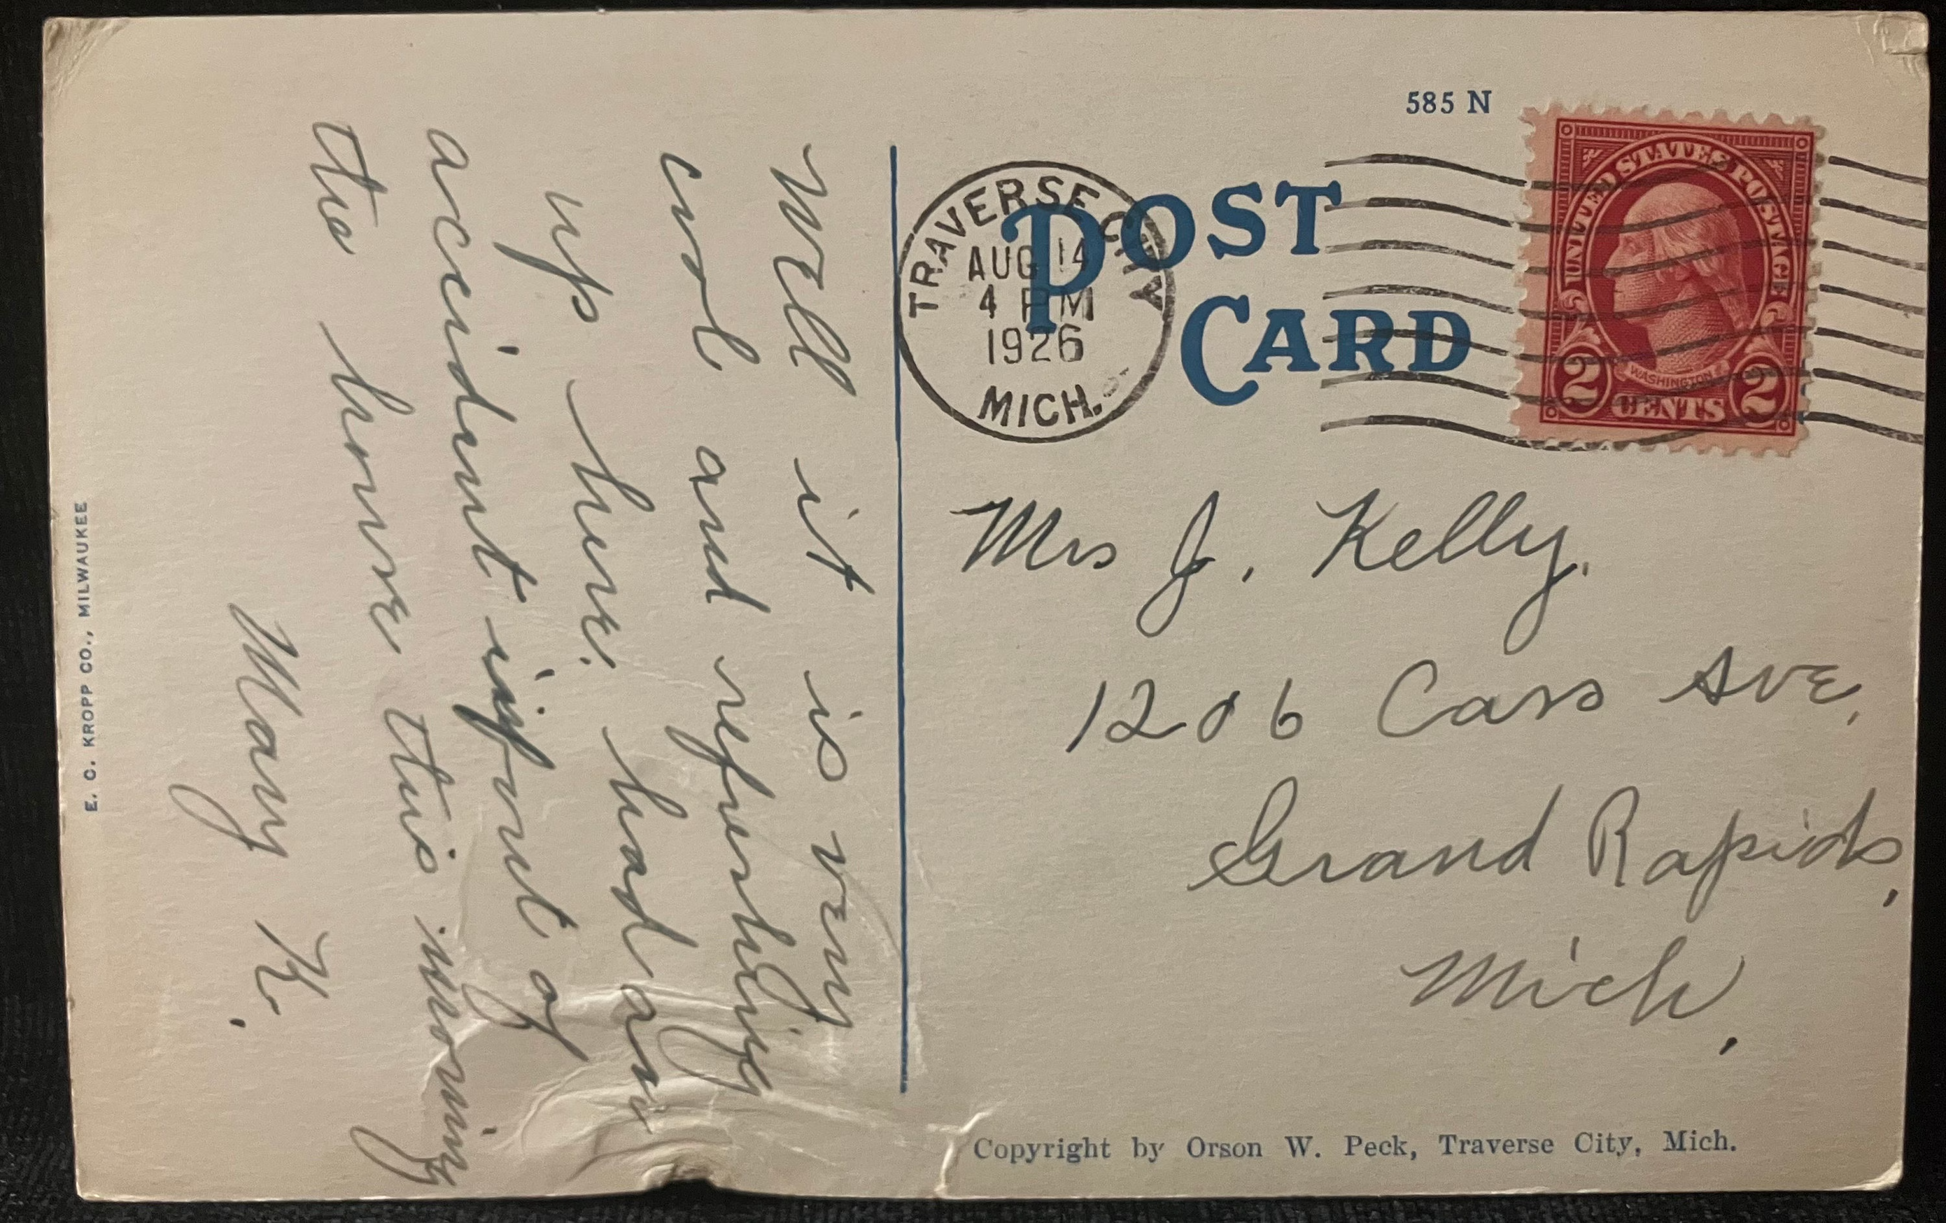 Well it is very
cool and refreshing
up here. had an
accident infront of
the house this morning
Mary K.
585 N
POST
CARD
TRAVERSE CITY
AUG 14
4 PM
1926
MICH.
UNITED STATES POSTAGE
WASHINGTON
2 CENTS 2
Mrs J. Kelly.
1206 Cass Ave.
Grand Rapids,
Mich.
Copyright by Orson W. Peck, Traverse City, Mich.
E. C. KROPP CO., MILWAUKEE